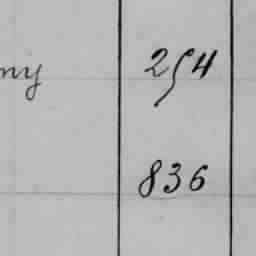 ny 254
836